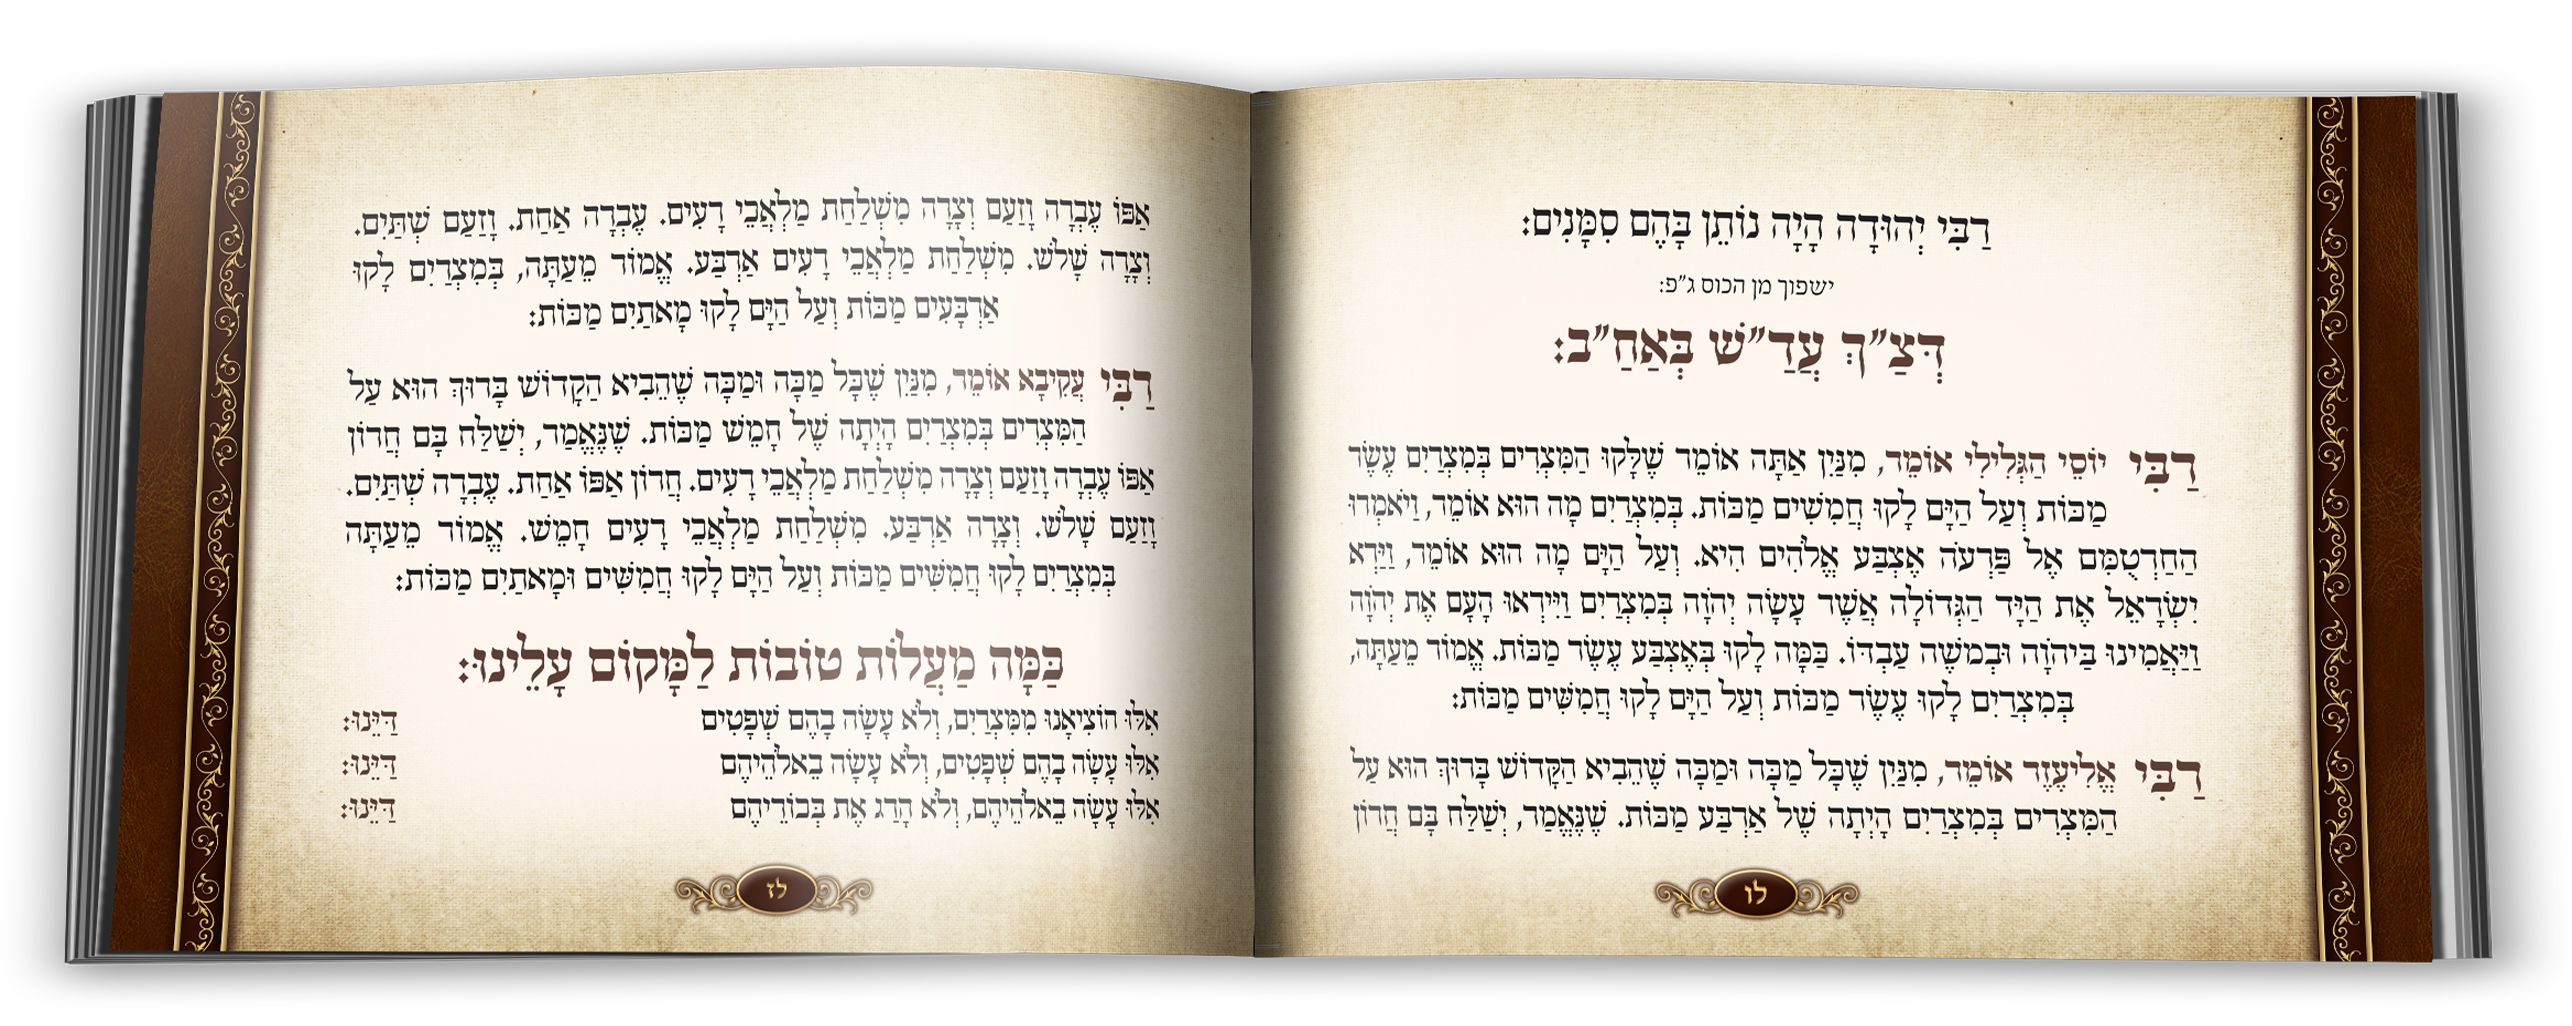 רַבִּי יְהוּדָה הָיָה נוֹתֵן בָּהֶם סִמָּנִים:
ישפוך מן הכוס ג"פ:
דְּצַ"ךְ עֲדַ"שׁ בְּאַחַ"ב:
רַבִּי יוֹסֵי הַגְּלִילִי אוֹמֵר, מִנַּיִן אַתָּה אוֹמֵר שֶׁלָּקוּ הַמִּצְרִים בְּמִצְרַיִם עֶשֶׂר
מַכּוֹת וְעַל הַיָּם לָקוּ חֲמִשִּׁים מַכּוֹת. בְּמִצְרַיִם מָה הוּא אוֹמֵר, וַיֹּאמְרוּ
הַחַרְטֻמִּם אֶל פַּרְעֹה אֶצְבַּע אֱלֹהִים הִיא. וְעַל הַיָּם מָה הוּא אוֹמֵר, וַיַּרְא
יִשְׂרָאֵל אֶת הַיָּד הַגְּדוֹלָה אֲשֶׁר עָשָׂה יְהֹוָה בְּמִצְרַיִם וַיִּירְאוּ הָעָם אֶת יְהֹוָה
וַיַּאֲמִינוּ בַּיהֹוָה וּבְמֹשֶׁה עַבְדּוֹ. כַּמָּה לָקוּ בְּאֶצְבַּע עֶשֶׂר מַכּוֹת. אֱמוֹר מֵעַתָּה,
בְּמִצְרַיִם לָקוּ עֶשֶׂר מַכּוֹת וְעַל הַיָּם לָקוּ חֲמִשִּׁים מַכּוֹת:
רַבִּי אֱלִיעֶזֶר אוֹמֵר, מִנַּיִן שֶׁכָּל מַכָּה וּמַכָּה שֶׁהֵבִיא הַקָּדוֹשׁ בָּרוּךְ הוּא עַל
הַמִּצְרִים בְּמִצְרַיִם הָיְתָה שֶׁל אַרְבַּע מַכּוֹת. שֶׁנֶּאֱמַר, יְשַׁלַּח בָּם חֲרוֹן
לו
אַפּוֹ עֶבְרָה וָזַעַם וְצָרָה מִשְׁלַחַת מַלְאֲכֵי רָעִים. עֶבְרָה אַחַת. וָזַעַם שְׁתַּיִם.
וְצָרָה שָׁלֹשׁ. מִשְׁלַחַת מַלְאֲכֵי רָעִים אַרְבַּע. אֱמוֹר מֵעַתָּה, בְּמִצְרַיִם לָקוּ
אַרְבָּעִים מַכּוֹת וְעַל הַיָּם לָקוּ מָאתַיִם מַכּוֹת:
רַבִּי עֲקִיבָא אוֹמֵר, מִנַּיִן שֶׁכָּל מַכָּה וּמַכָּה שֶׁהֵבִיא הַקָּדוֹשׁ בָּרוּךְ הוּא עַל
הַמִּצְרִים בְּמִצְרַיִם הָיְתָה שֶׁל חָמֵשׁ מַכּוֹת. שֶׁנֶּאֱמַר, יְשַׁלַּח בָּם חֲרוֹן
אַפּוֹ עֶבְרָה וָזַעַם וְצָרָה מִשְׁלַחַת מַלְאֲכֵי רָעִים. חֲרוֹן אַפּוֹ אַחַת. עֶבְרָה שְׁתַּיִם.
וָזַעַם שָׁלֹשׁ. וְצָרָה אַרְבַּע. מִשְׁלַחַת מַלְאֲכֵי רָעִים חָמֵשׁ. אֱמוֹר מֵעַתָּה
בְּמִצְרַיִם לָקוּ חֲמִשִּׁים מַכּוֹת וְעַל הַיָּם לָקוּ חֲמִשִּׁים וּמָאתַיִם מַכּוֹת:
כַּמָּה מַעֲלוֹת טוֹבוֹת לַמָּקוֹם עָלֵינוּ:
אִלּוּ הוֹצִיאָנוּ מִמִּצְרַיִם, וְלֹא עָשָׂה בָהֶם שְׁפָטִים דַּיֵּנוּ:
אִלּוּ עָשָׂה בָהֶם שְׁפָטִים, וְלֹא עָשָׂה בֵאלֹהֵיהֶם דַּיֵּנוּ:
אִלּוּ עָשָׂה בֵאלֹהֵיהֶם, וְלֹא הָרַג אֶת בְּכוֹרֵיהֶם דַּיֵּנוּ:
לז